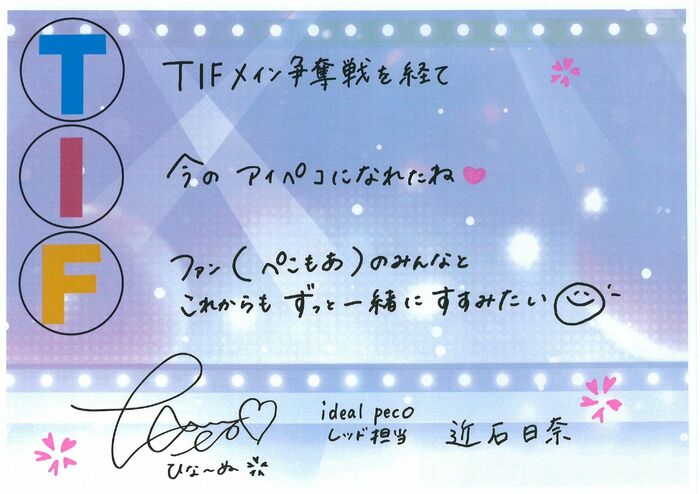 T
TIFメイン争奪戦を経て
I
今の アイペコになれたね
F
ファン(ぺこもあ)のみんなと
これからも ずっと一緒に すすみたい
ideal peco
レッド担当
近石日奈
ひな〜ぬ